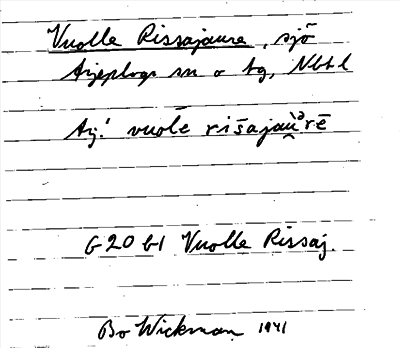 Vuolle Rissajaure, sjö
Arjeplogs sn o tg, Nbtl
Arj.! vuolē rišajau̯ᵊrē
G 20 b1 Vuolle Rissaj.
Bo Wickman 1941